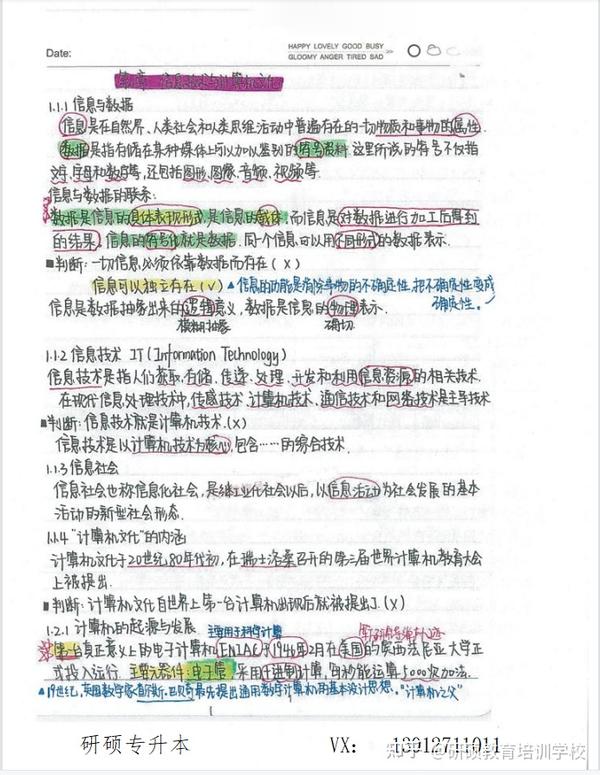 Date:
HAPPY LOVELY GOOD BUSY
GLOOMY ANGER TIRED SAD
第一章 信息技术与计算机文化
1.1.1 信息与数据
信息是在自然界、人类社会和人类思维活动中普遍存在的一切物质和事物的属性.
数据是指存储在某种媒体上可以加以鉴别的符号资料.这里所说的符号不仅指
文字、字母和数字等,还包括图形、图像、音频、视频等.
信息与数据的联系:
数据是信息的具体表现形式,是信息的载体.而信息是对数据进行加工后得到
的结果.信息的符号化就是数据.同一个信息可以用不同形式的数据表示.
■判断:一切信息必须依靠数据而存在(X)
信息可以独立存在(√)▲信息的功能是消除事物的不确定性,把不确定性变成
确定性。
信息是数据抽象出来的逻辑意义,数据是信息的物理表示.
模糊抽象 确切
1.1.2 信息技术 IT(Information Technology)
信息技术是指人们获取、存储、传递、处理、开发和利用信息资源的相关技术.
在现代信息处理技术中,传感技术、计算机技术、通信技术和网络技术是主导技术
■判断:信息技术就是计算机技术.(X)
信息技术是以计算机技术为核心,包含……的综合技术.
1.1.3 信息社会
信息社会也称信息化社会,是继工业化社会以后,以信息活动为社会发展的基本
活动的新型社会形态.
1.1.4 "计算机文化"的内涵
计算机文化于20世纪80年代初,在瑞士洛桑召开的第三届世界计算机教育大会
上被提出.
■判断:计算机文化自世界上第一台计算机出现后就被提出了.(X)
1.2.1 计算机的起源与发展 主要用于科学计算
第一台真正意义上的电子计算机(ENIAC)于1946年2月在美国的宾西法尼亚大学正
式投入运行.主要元器件:电子管 采用十进制计算,每秒能运算5000次加法.
▲19世纪,英国数学家查尔斯·巴贝奇最先提出通用数字计算机的基本设计思想."计算机之父"
1
研硕专升本 VX: 18312711011
知乎 @研硕教育培训学校